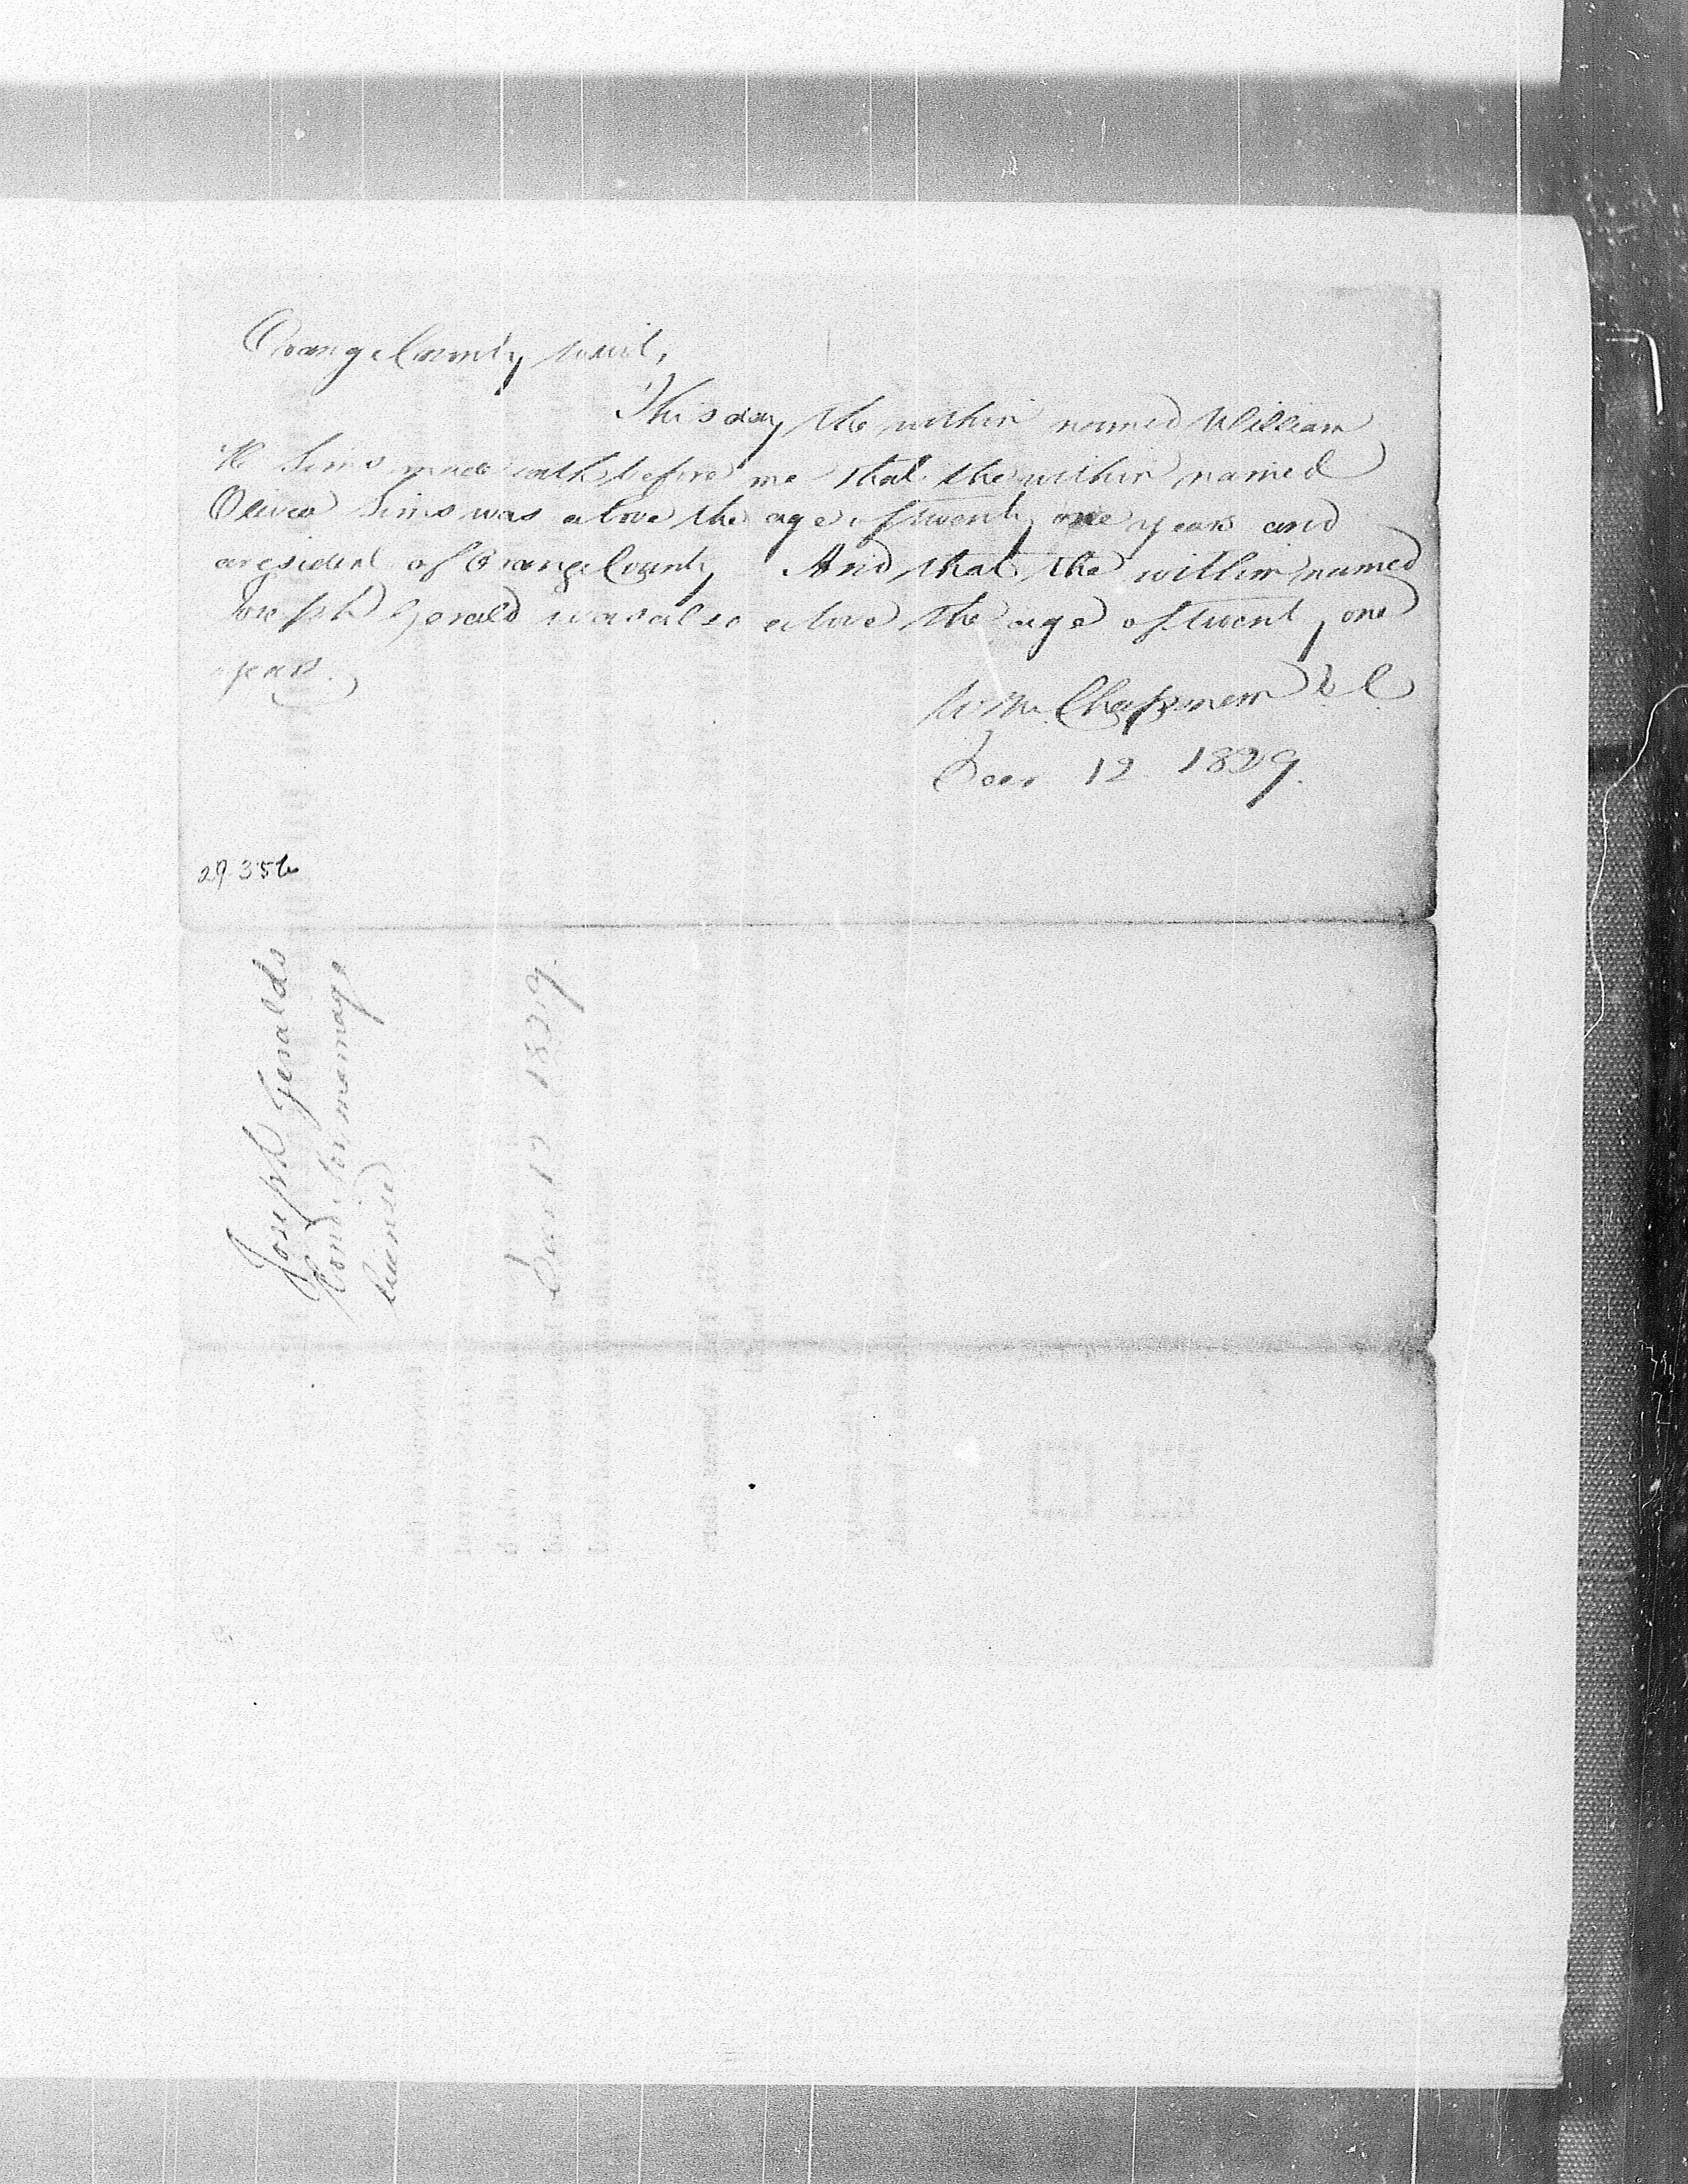 Orange County to wit,
This day the within named William
Sims made oath before me that the within named
Olivia Sims was above the age of twenty one years and
a resident of Orange County And that the within named
Joseph Gerald was also above the age of twenty one
years.
Wm. Chapman D. C.
Decr 12 1829.
29-356
Joseph Geralds
Bond for marriage
license
Decr 12 1829.